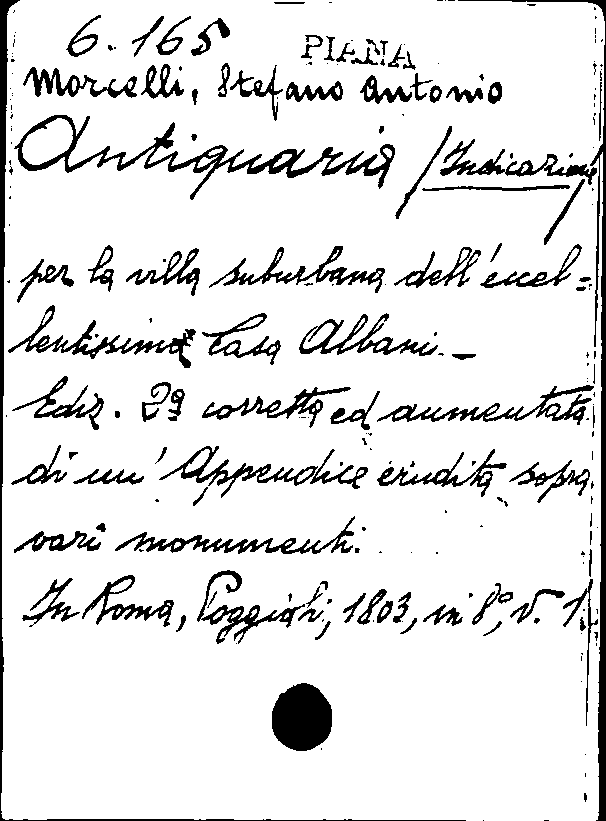 6.165 PIANA
Morcelli, Stefano Antonio
Antiquaria /Indicazione/
per la villa suburbana dell'eccel=
lentissima Casa Albani. _
Ediz. 2ª corretta ed aumentata
di un' Appendice erudita sopra
vari monumenti.
In Roma, Poggioli, 1803, in 8º, v. 1.